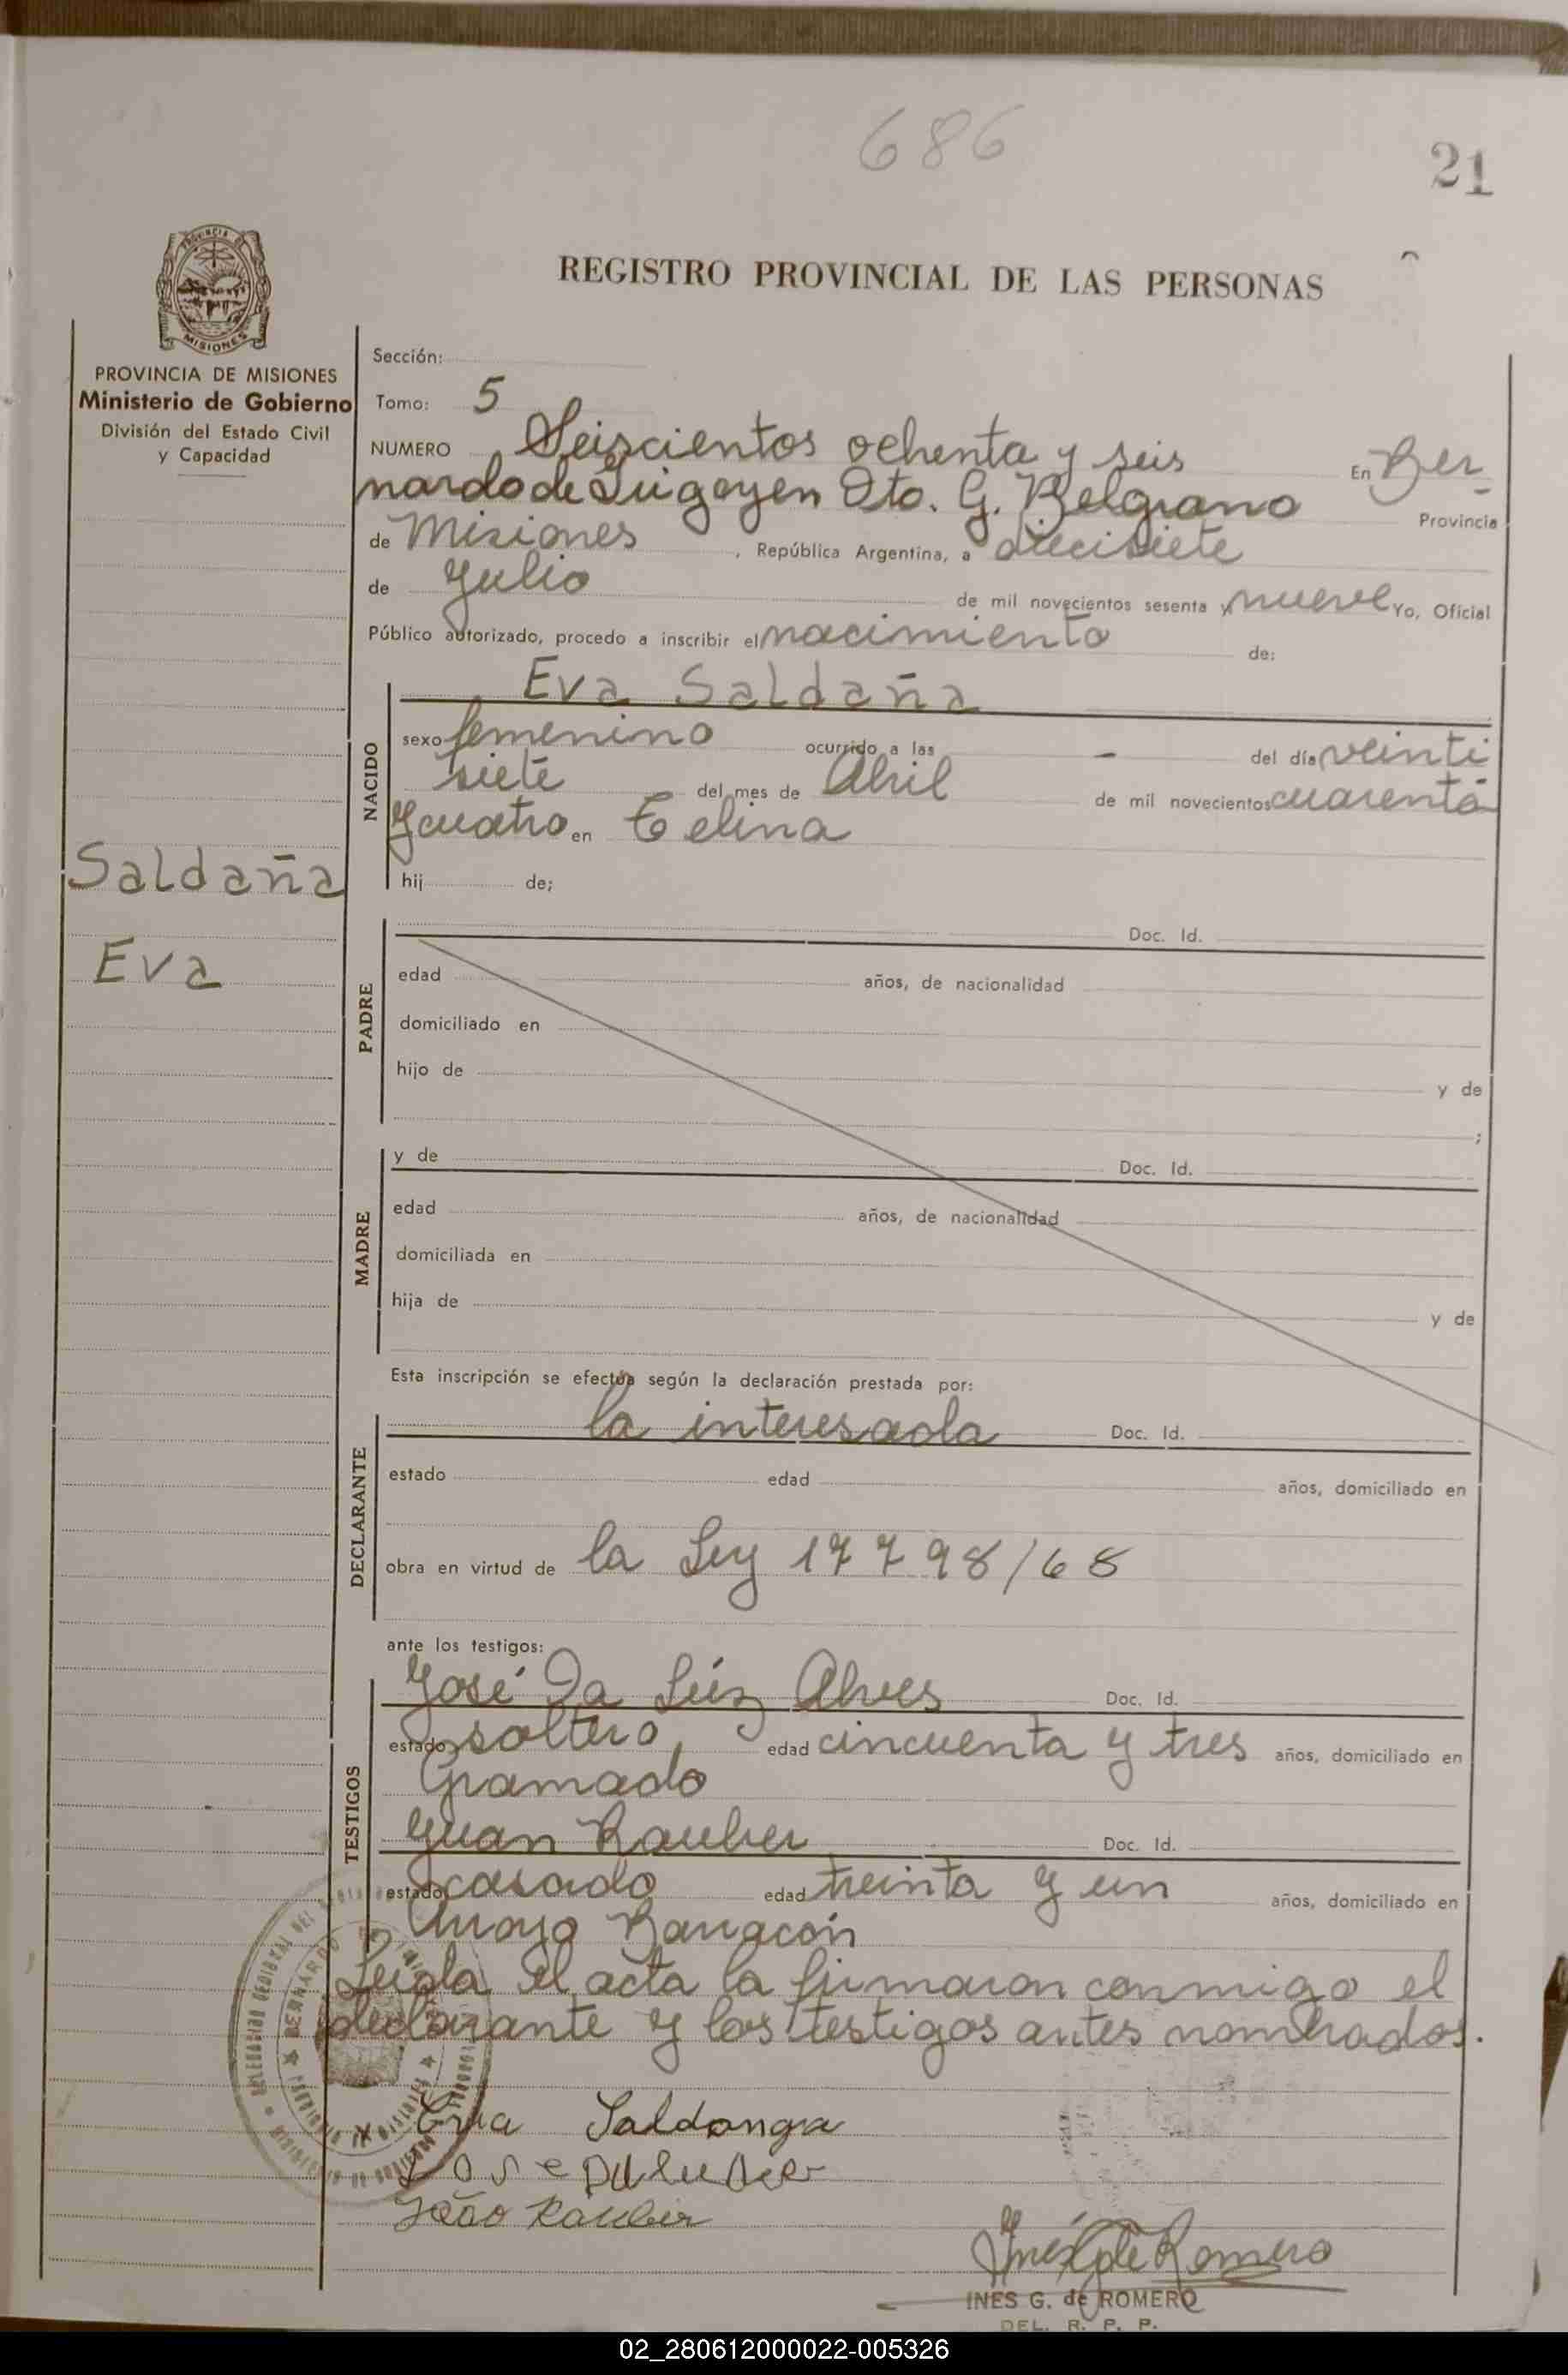 686
21
REGISTRO PROVINCIAL DE LAS PERSONAS
PROVINCIA DE
MISIONES
PROVINCIA DE MISIONES
Ministerio de Gobierno
División del Estado Civil
y Capacidad
Saldaña
Eva
Sección:
Tomo: 5
NUMERO Seiscientos ochenta y seis En Ber-
nardo de Irigoyen Dto. G. Belgrano Provincia
de Misiones, República Argentina, a diecisiete
de Julio de mil novecientos sesenta y nueve Yo, Oficial
Público autorizado, procedo a inscribir el nacimiento de:
NACIDO
Eva Saldaña
sexo femenino ocurrido a las - del día veinti
siete del mes de Abril de mil novecientos cuarenta
y cuatro en Celina
hij de;
PADRE
Doc. Id.
edad años, de nacionalidad
domiciliado en
hijo de y de
;
MADRE
y de Doc. Id.
edad años, de nacionalidad
domiciliada en
hija de y de
Esta inscripción se efectúa según la declaración prestada por:
DECLARANTE
la interesada Doc. Id.
estado edad años, domiciliado en
obra en virtud de la Ley 17798/68
ante los testigos:
TESTIGOS
José Da Lúz Alves Doc. Id.
estado soltero, edad cincuenta y tres años, domiciliado en
Gramado
Juan Rauber Doc. Id.
estado casado edad treinta y un años, domiciliado en
Arroyo Barracón
Leida el acta la firmaron conmigo el
declarante y los testigos antes nombrados.
BERNARDO DE
Eva Saldanga
Jose
João Rauber
Inés G de Romero
INES G. de ROMERO
DEL. R. P. P.
02_280612000022-005326